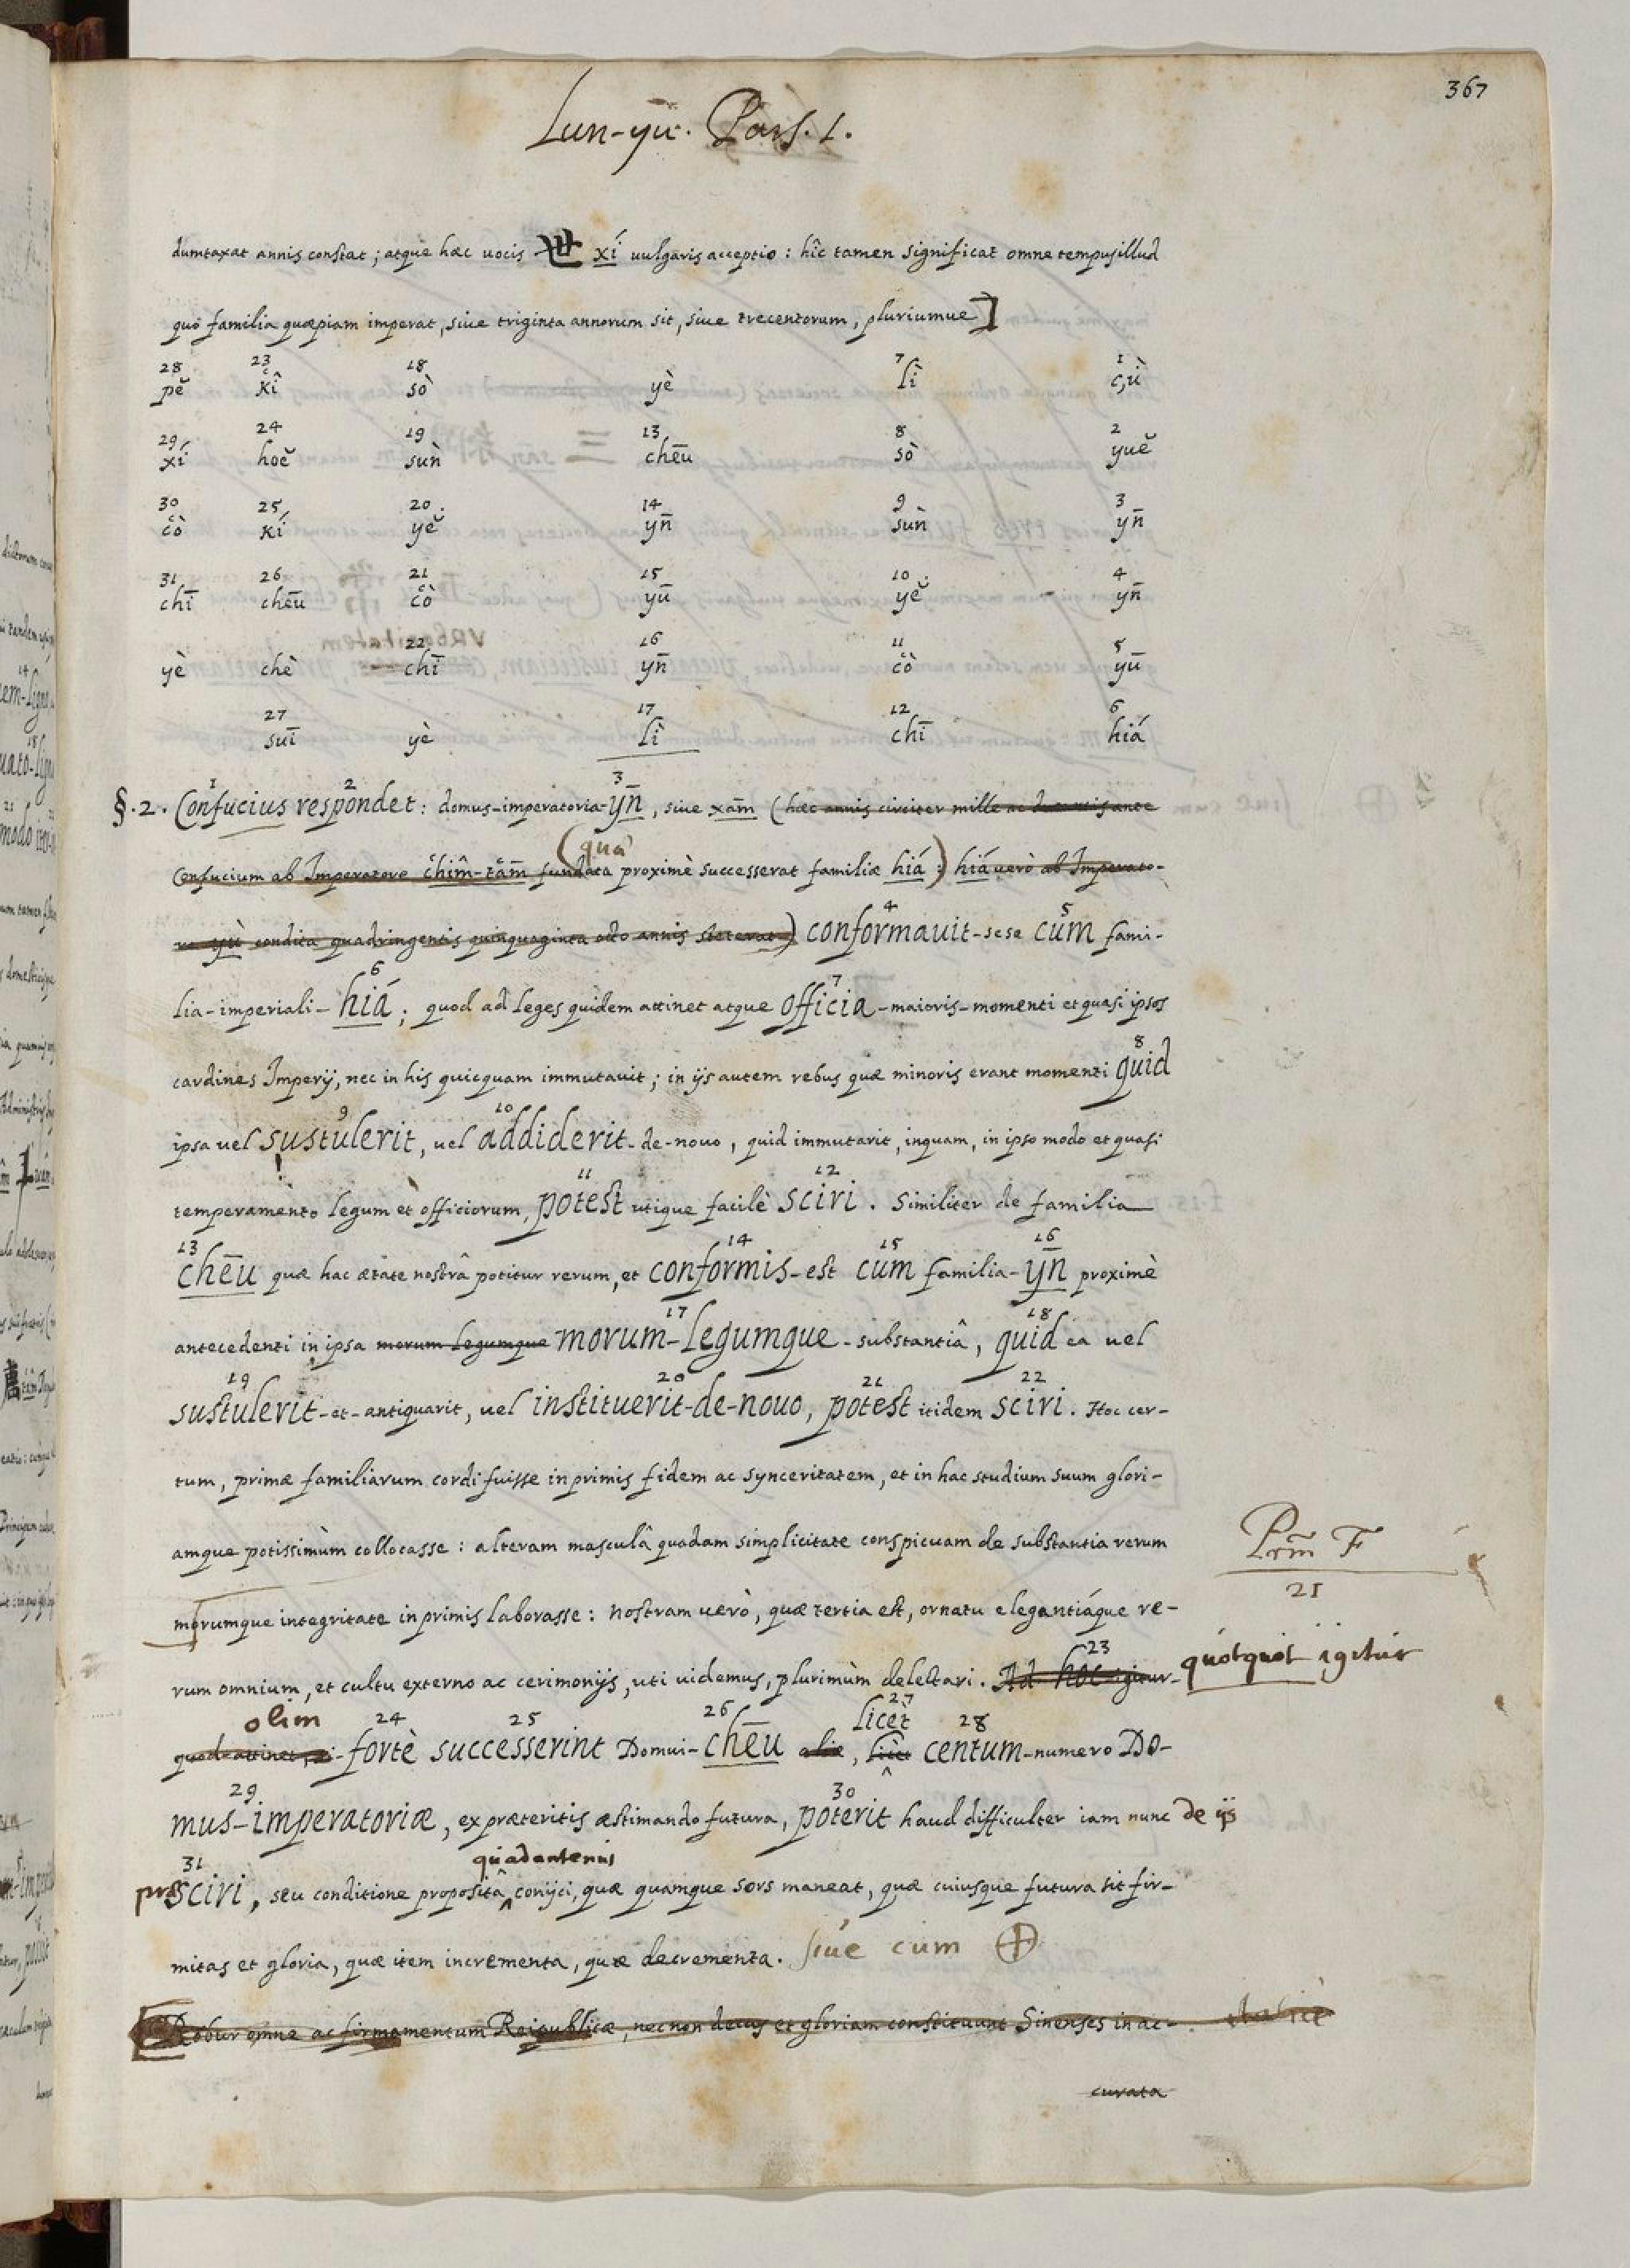 367
Lun-yu. Pars. 1.
dumtaxat annis constat ; atque hæc uocis 世 xí uulgaris acceptio : hîc tamen significat omne tempus illud
quo familia quæpiam imperat, siue triginta annorum sit, siue trecentorum, pluriumue]
28 23 18 7 1
pĕ kî sò yè lì çù
29 24 19 13 8 2
xí hoĕ sùn chēu sò yuĕ
30 25 20 14 9 3
cò kí yĕ yn̄ sùn yn̄
31 26 21 15 10 4
chī chēu cò yū yĕ yn̄
22 16 11 5
yè chè chī yn̄ cò yū
27 17 12 6
suī yè lì chī hiá
1 2 3
§.2. Confucius respondet : domus-imperatoria-yn̄, siue xām (hæc annis circiter mille ac ducentis ante
(qua
Confucium ab Imperatore chîm-tām fundata proximè successerat familiæ hiá :) hiá uerò ab Imperato-
4 5
re yù condita quadringentis quinquaginta octo annis steterat) conformauit-sese cum fami-
6 7
lia-imperiali-hiá ; quod ad leges quidem attinet atque officia-maioris-momenti et quasi ipsos
8
cardines Imperij, nec in his quicquam immutauit ; in ijs autem rebus quæ minoris erant momenti quid
9 10
ipsa uel sustulerit, uel addiderit-de-nouo, quid immutarit, inquam, in ipso modo et quasi
11 12
temperamento legum et officiorum, potest utique facilè sciri. Similiter de familia
13 14 15 16
chēu quæ hac ætate nostrâ potitur rerum, et conformis-est cum familia-yn̄ proximè
17 18
antecedenti in ipsa morum legumque morum-legumque-substantiâ, quid ea uel
19 20 21 22
sustulerit-et-antiquarit, uel instituerit-de-nouo, potest itidem sciri. Hoc cer-
tum, primæ familiarum cordi fuisse inprimis fidem ac synceritatem, et in hac studium suum glori-
amque potissimùm collocasse : alteram masculâ quadam simplicitate conspicuam de substantia rerum
Prm̄ F
21
morumque integritate inprimis laborasse : nostram uerò, quæ tertia est, ornatu elegantiáque re-
23
rum omnium, et cultu externo ac cerimonijs, uti uidemus, plurimùm delectari. Ad hoc igitur- quotquot igitur
olim 24 25 26 licèt 27 28
quod attinet, si-fortè successerint Domui-chēu aliæ, licèt centum-numero Do-
29 30
mus-imperatoriæ, ex præteritis æstimando futura, poterit haud difficulter iam nunc de ijs
31 quadantenus
præsciri, seu conditione propositâ conijci, quæ quamque sors maneat, quæ cuiusque futura sit fir-
mitas et gloria, quæ item incrementa, quæ decrementa. siue cum ⊕
[Robur omne ac firmamentum Reipublicæ, necnon decus et gloriam constituunt Sinenses in ac-
curata